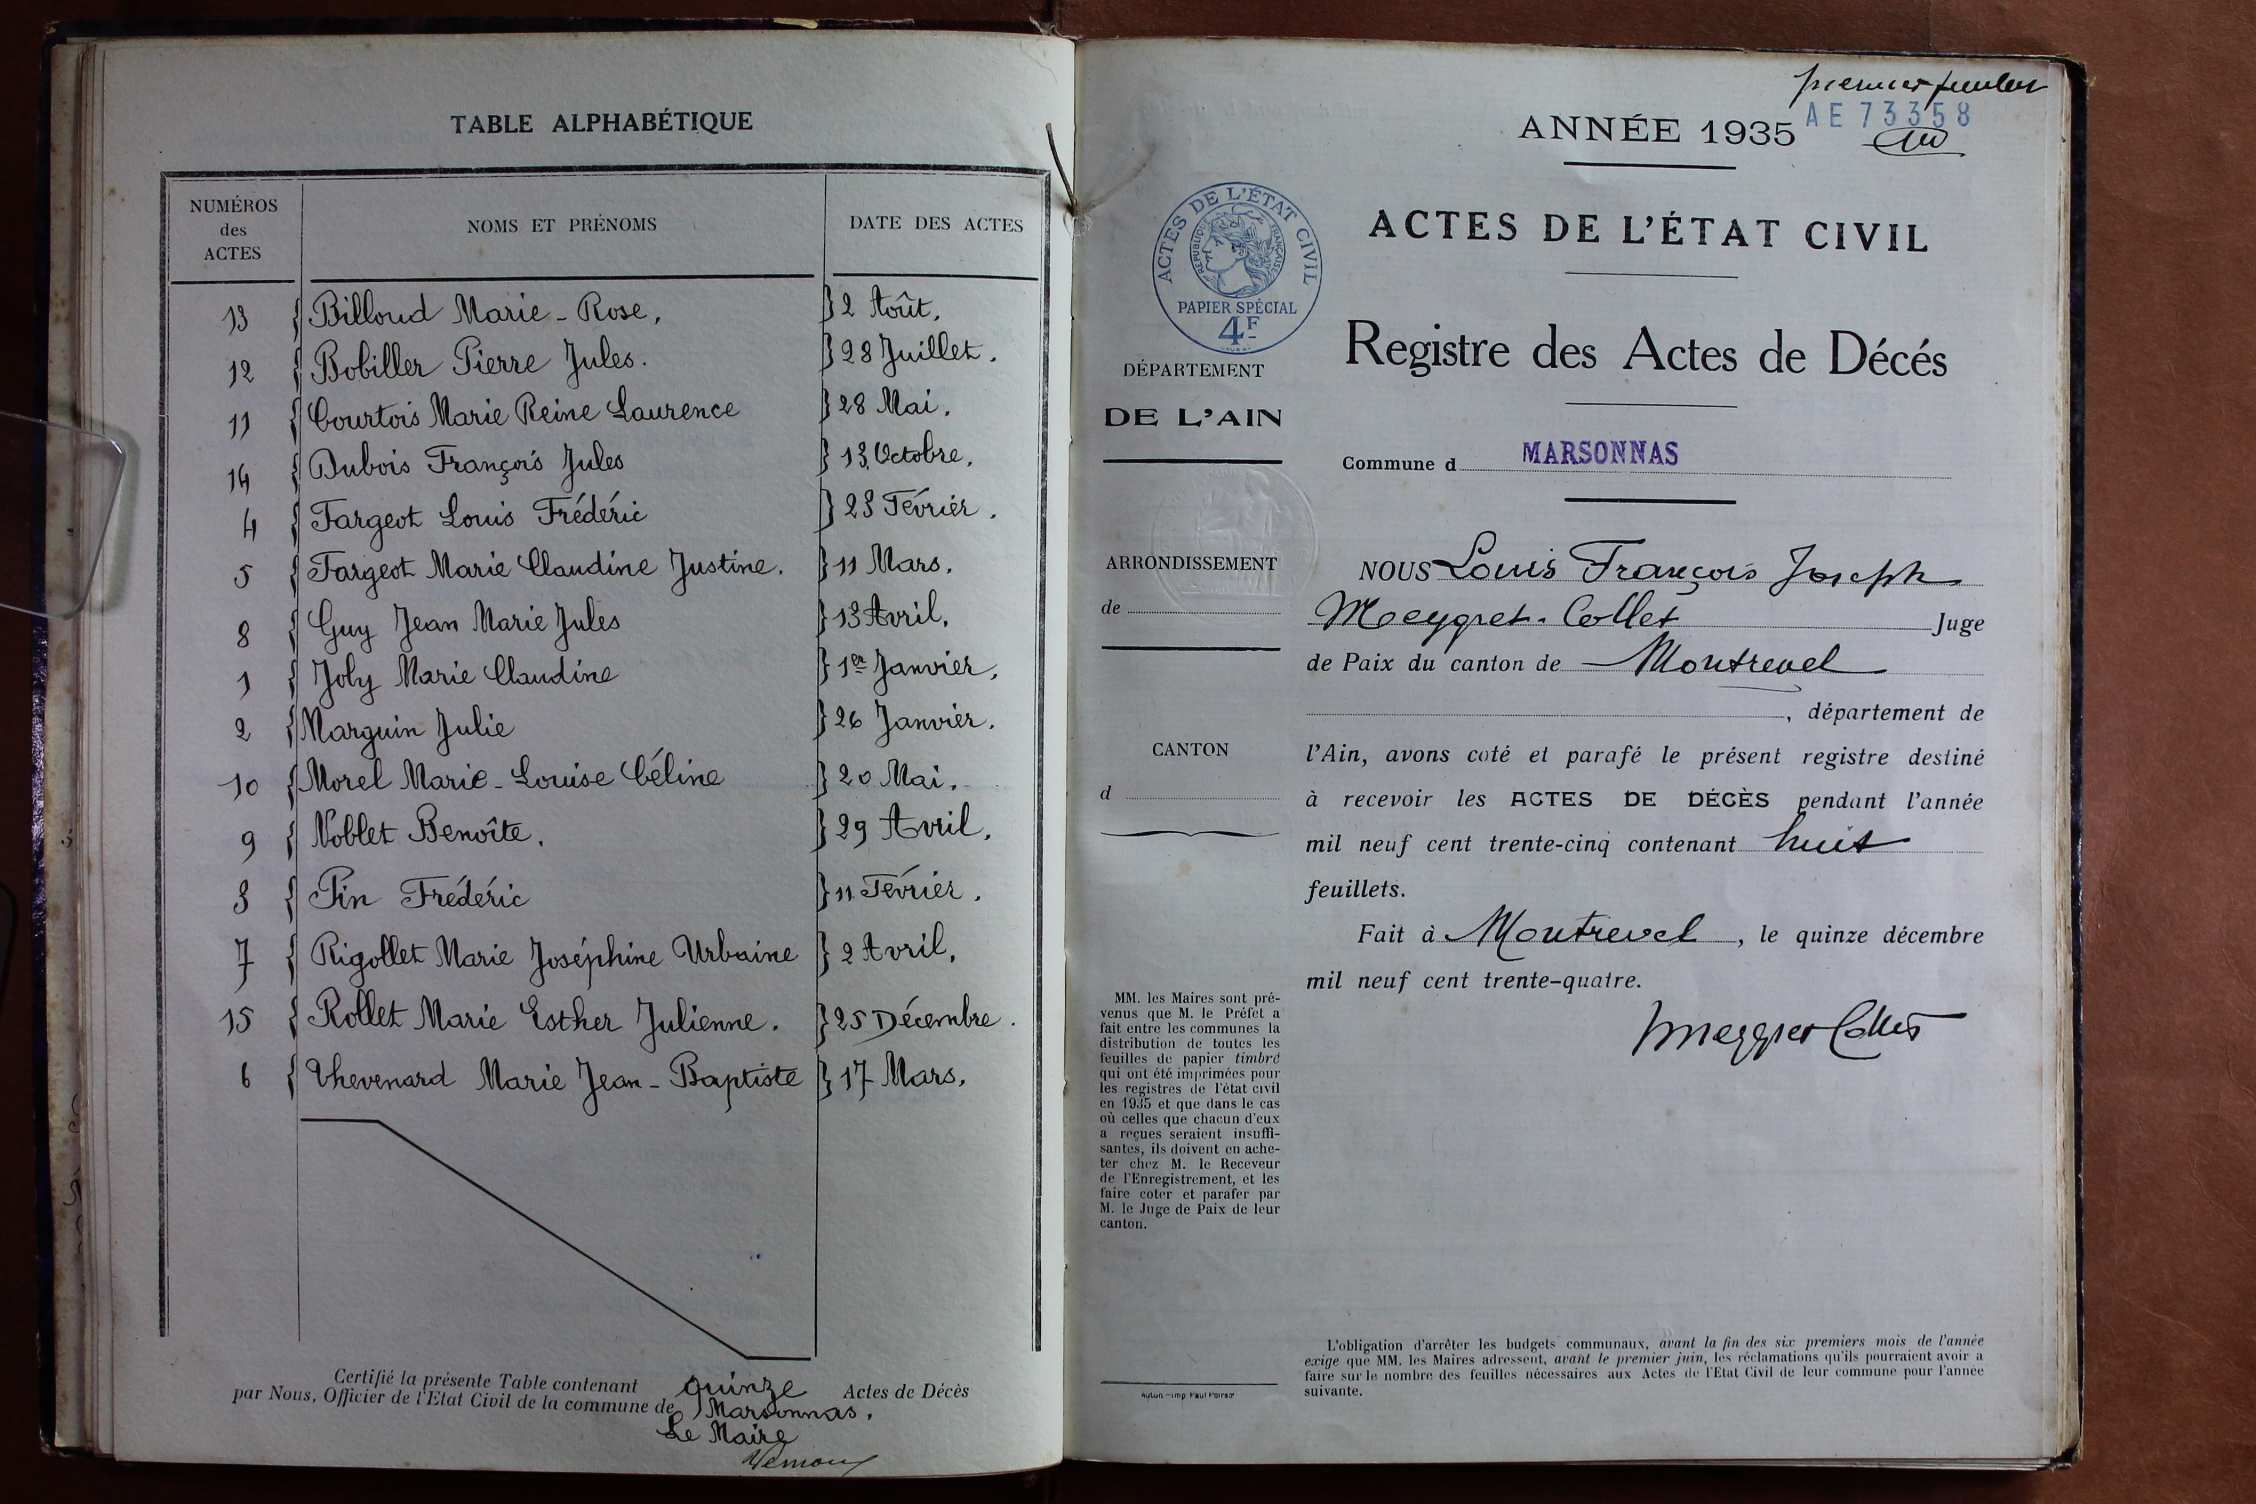 TABLE ALPHABÉTIQUE
NUMÉROS des ACTES NOMS ET PRÉNOMS DATE DES ACTES
13 Billoud Marie-Rose, 2 Août.
12 Bobiller Pierre Jules. 28 Juillet.
11 Courtois Marie Reine Laurence 28 Mai.
14 Dubois François Jules 13 Octobre.
4 Fargeot Louis Frédéric 23 Février.
5 Fargeot Marie Claudine Justine. 11 Mars.
8 Guy Jean Marie Jules 13 Avril.
1 Joly Marie Claudine 1er Janvier.
2 Marguin Julie 26 Janvier.
10 Morel Marie-Louise Céline 20 Mai.
9 Noblet Benoîte. 29 Avril.
3 Pin Frédéric 11 Février.
7 Rigollet Marie Joséphine Urbaine 2 Avril.
15 Rollet Marie Esther Julienne. 25 Décembre.
6 Thevenard Marie Jean-Baptiste 17 Mars.
Certifié la présente Table contenant quinze Actes de Décès
par Nous, Officier de l'Etat Civil de la commune de Marsonnas.
Le Maire
premier feuillet
AE 73358
ANNÉE 1935
ACTES DE L'ÉTAT CIVIL
RÉPUBLIQUE FRANÇAISE
PAPIER SPÉCIAL
4F
ACTES DE L'ÉTAT CIVIL
Registre des Actes de Décés
DÉPARTEMENT
DE L'AIN
Commune d MARSONNAS
ARRONDISSEMENT
de
CANTON
d
NOUS Louis François Joseph
Meygret-Collet Juge
de Paix du canton de Montrevel
, département de
l'Ain, avons coté et parafé le présent registre destiné
à recevoir les ACTES DE DÉCÈS pendant l'année
mil neuf cent trente-cinq contenant huit
feuillets.
Fait à Montrevel, le quinze décembre
mil neuf cent trente-quatre.
Meygret Collet
MM. les Maires sont pré-
venus que M. le Préfet a
fait entre les communes la
distribution de toutes les
feuilles de papier timbré
qui ont été imprimées pour
les registres de l'état civil
en 1935 et que dans le cas
où celles que chacun d'eux
a reçues seraient insuffi-
santes, ils doivent en ache-
ter chez M. le Receveur
de l'Enregistrement, et les
faire coter et parafer par
M. le Juge de Paix de leur
canton.
L'obligation d'arrêter les budgets communaux, avant la fin des six premiers mois de l'année
exige que MM. les Maires adressent, avant le premier juin, les réclamations qu'ils pourraient avoir a
faire sur le nombre des feuilles nécessaires aux Actes de l'Etat Civil de leur commune pour l'année
suivante.
Autun - Imp Paul